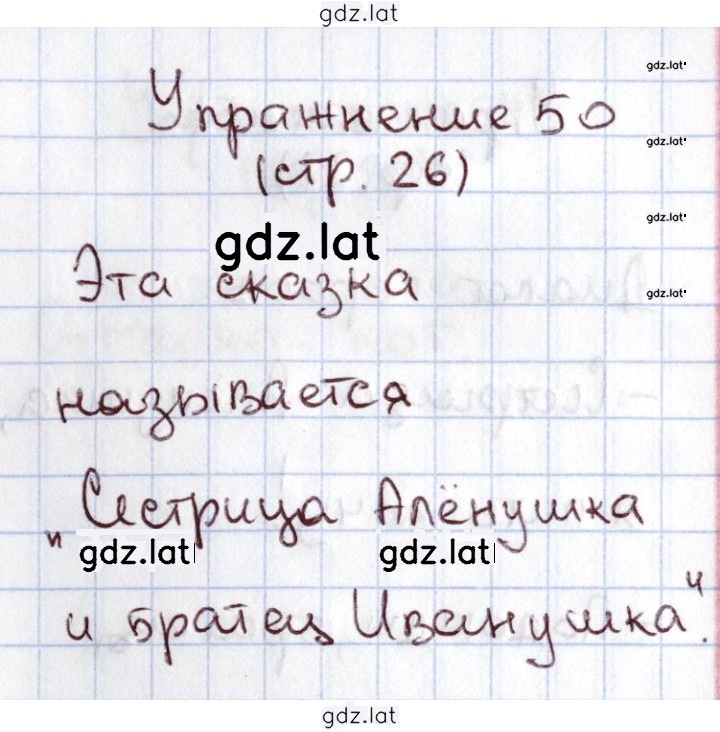 gdz.lat
gdz.lat
Упражнение 50
gdz.lat
(стр. 26)
gdz.lat
gdz.lat
Эта сказка
gdz.lat
называется
„Сестрица Алёнушка
gdz.lat gdz.lat
и братец Иванушка“.
gdz.lat